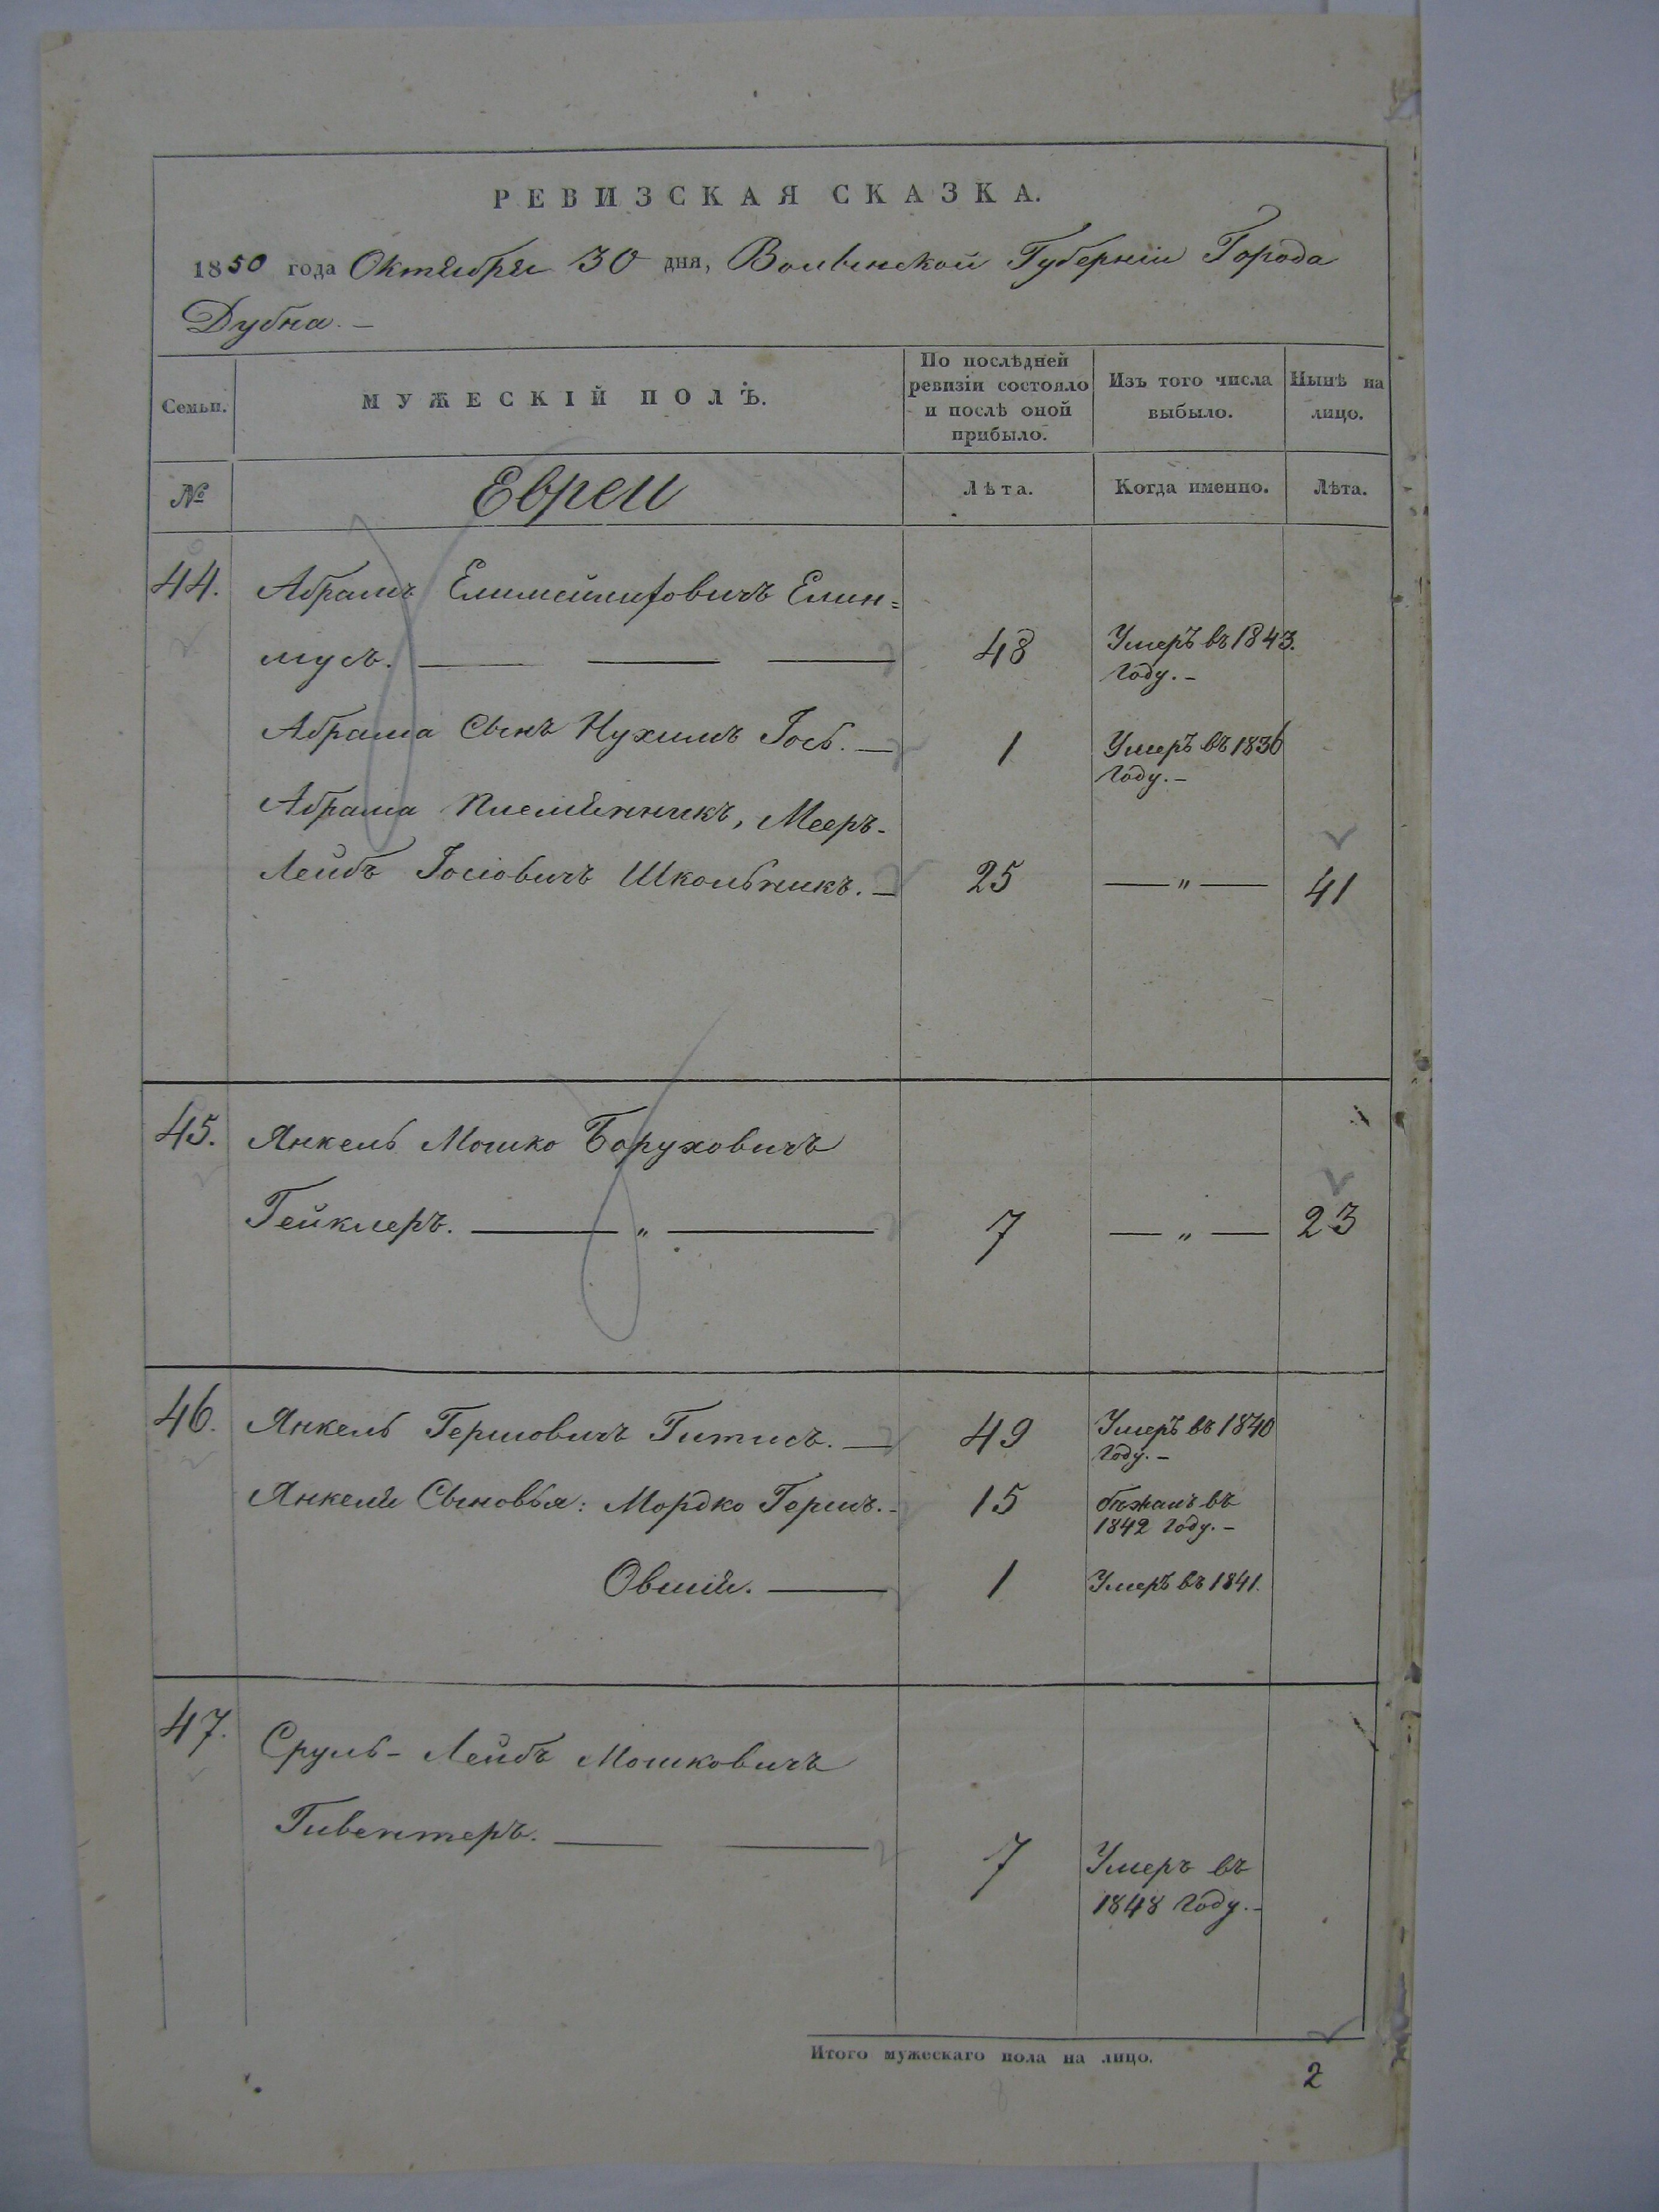 РЕВИЗСКАЯ СКАЗКА.
1850 года Октября 30 дня, Волынской Губерніи Города
Дубна. —
Семьи.
МУЖЕСКІЙ ПОЛЪ.
По послѣдней ревизіи состояло и послѣ оной прибыло.
Изъ того числа выбыло.
Нынѣ на лицо.
№
Евреи
Лѣта.
Когда именно.
Лѣта.
44. Абрамъ Елин=
мусъ. — — — 48 Умеръ въ 1843. году. —
Абрама Сынъ Нухимъ Іось. — 1 Умеръ въ 1836 году. —
Абрама племянникъ, Мееръ-
Лейбъ Іосіовичъ Школьникъ. — 25 — „ — 41
45. Янкель Мошко Боруховичъ
Гейклеръ. — „ — 7 — „ — 23
46. Янкель Гершовичъ Гитисъ. — 49 Умеръ въ 1840 году. —
Янкеля Сыновья: Мордко Гершъ. - 15 бѣжалъ въ 1842 году. —
Овшія. — 1 Умеръ въ 1841.
47. Сруль - Лейбъ Мошковичъ
Гивентеръ. — — 7 Умеръ въ
1848 году. -
Итого мужескаго пола на лицо. 2